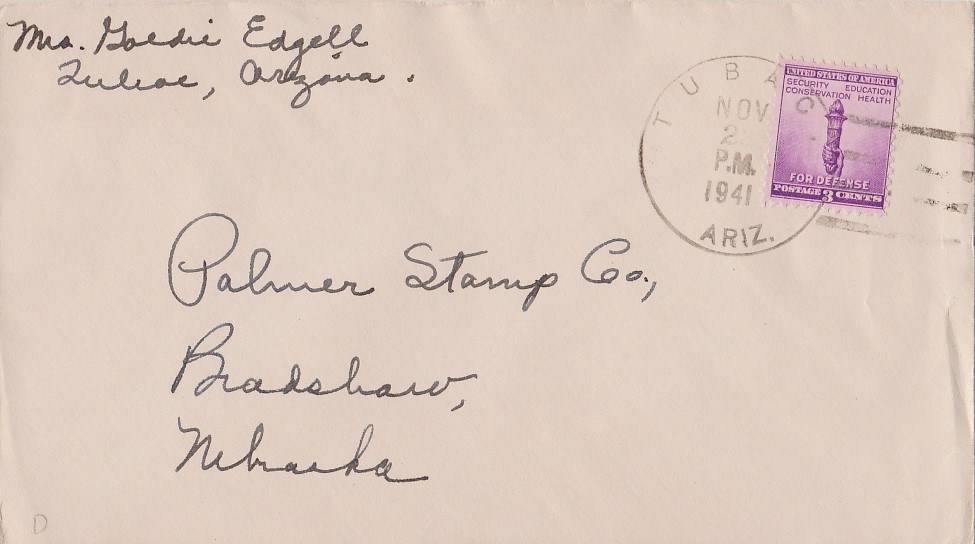 Mrs. Goldie Edgell
Tubac, Arizona.
TUBAC
NOV
2
P.M.
1941
ARIZ.
UNITED STATES OF AMERICA
SECURITY EDUCATION
CONSERVATION HEALTH
FOR DEFENSE
POSTAGE 3 CENTS
Palmer Stamp Co.,
Bradshaw,
Nebraska
D